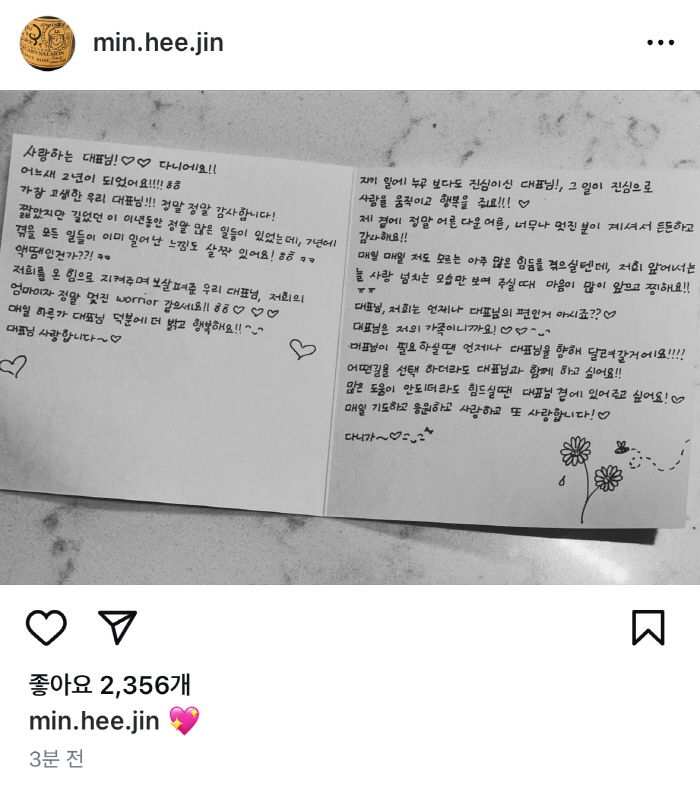 min.hee.jin
사랑하는 대표님!♡♡ 다니에요!!
어느새 2년이 되었어요!!!! ㅎㅎ
가장 고생한 우리 대표님!!! 정말 정말 감사합니다!
짧았지만 길었던 이 이년동안 정말 많은 일들이 있었는데, 7년에
겪을 모든 일들이 이미 일어난 느낌도 살짝 있어요! ㅎㅎ
액땜인건가??!
저희를 온 힘으로 지켜주며 보살펴준 우리 대표님, 저희의
엄마이자 정말 멋진 worrior 같으세요!! ㅎㅎ ♡ ♡ ♡
매일 하루가 대표님 덕분에 더 밝고 행복해요!! ^_^
대표님 사랑합니다~♡
자기 일에 누구 보다도 진심이신 대표님!, 그 일이 진심으로
사람을 움직이고 행복을 줘요!!! ♡
제 곁에 정말 어른 다운 어른, 너무나 멋진 분이 계셔서 든든하고
감사해요!!
매일 매일 저도 모르는 아주 많은 힘듦을 겪으실텐데, 저희 앞에서는
늘 사랑 넘치는 모습만 보여 주실때 마음이 많이 앞으고 찡해요!!
ㅠㅠ
대표님, 저희는 언제나 대표님의 편인거 아시죠??♡
대표님은 저의 가족이니까요!♡♡^_^
대표님이 필요하실땐 언제나 대표님을 향해 달려갈거에요!!!!
어떤길을 선택 하더라도 대표님과 함께 하고 싶어요!!
많은 도움이 안되더라도 힘드실땐 대표님 곁에 있어주고 싶어요!♡
매일 기도하고 응원하고 사랑하고 또 사랑합니다!♡
다니가~♡
좋아요 2,356개
min.hee.jin 💖
3분 전